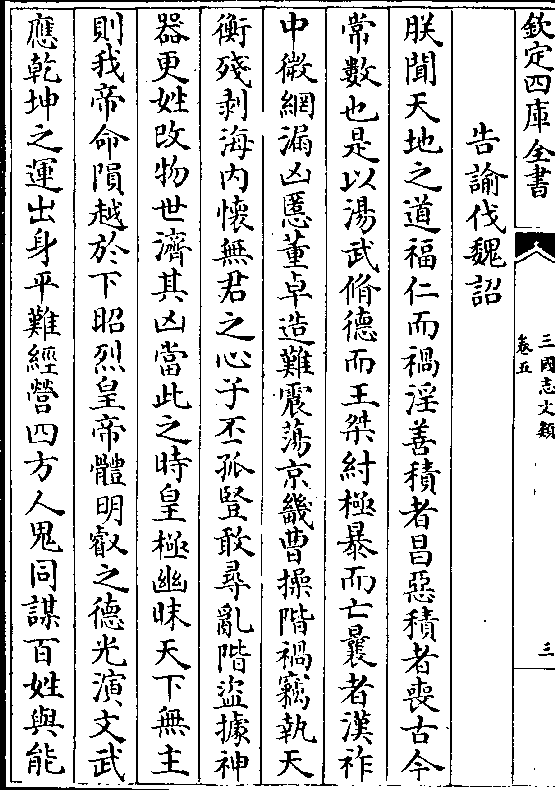 欽定四庫全書
三國志文類
卷五
三
告諭伐魏詔
朕聞天地之道福仁而禍淫善積者昌惡積者喪古今
常數也是以湯武脩德而王桀紂極暴而亡曩者漢祚
中微網漏凶慝董卓造難震蕩京畿曹操階禍竊執天
衡殘剥海内懷無君之心子丕孤豎敢尋亂階盜據神
器更姓改物世濟其凶當此之時皇極幽昧天下無主
則我帝命隕越於下昭烈皇帝體明叡之德光演文武
應乾坤之運出身平難經營四方人鬼同謀百姓與能